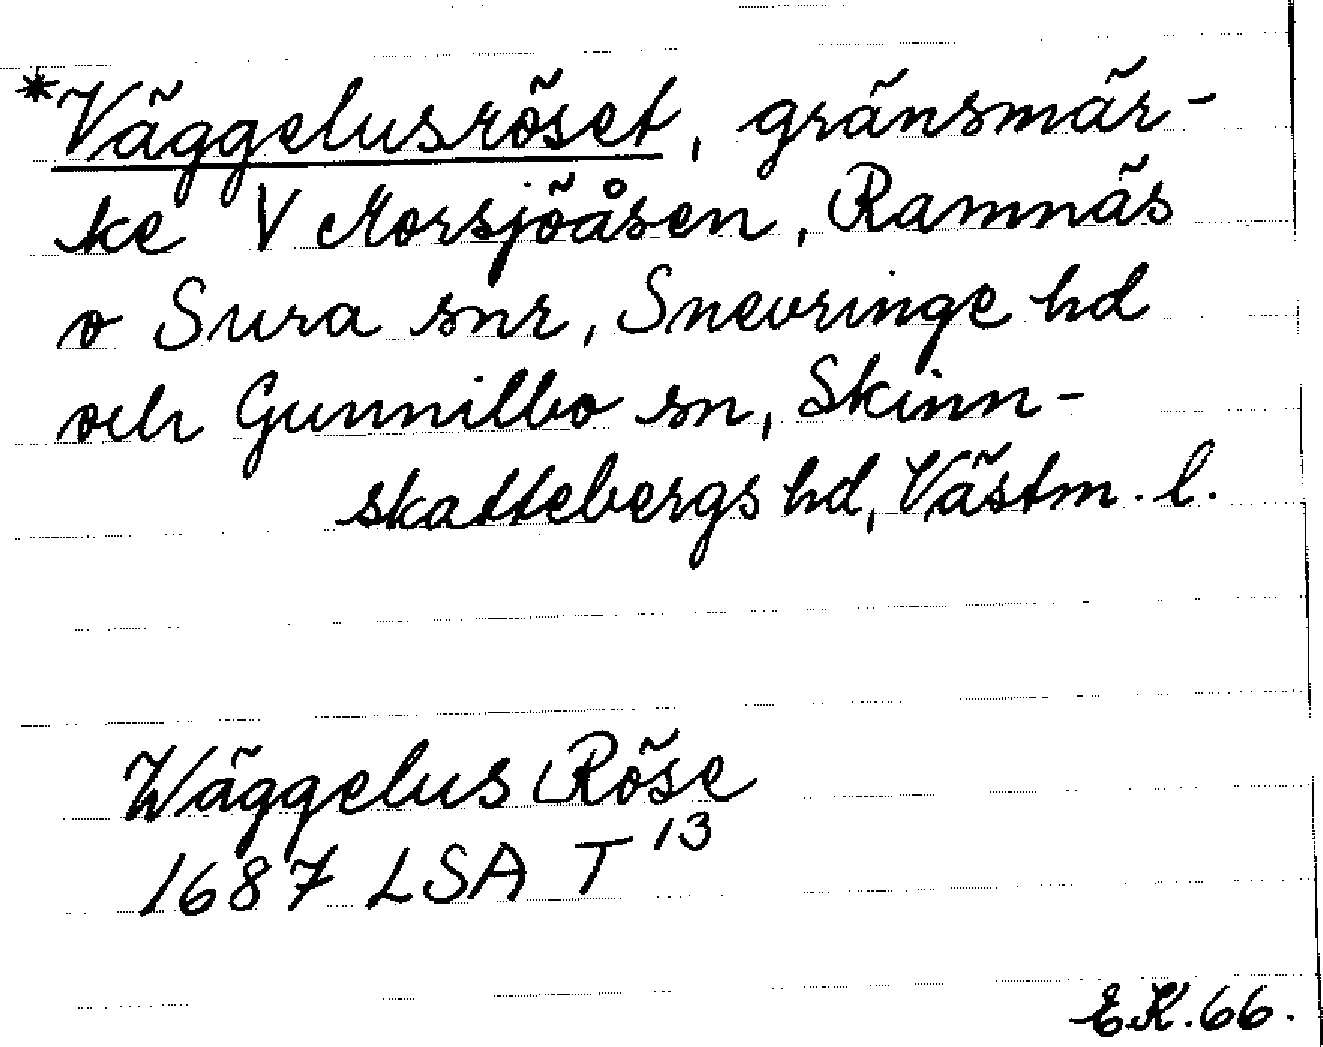 *Väggelusröset, gränsmär-
ke V Morsjöåsen, Ramnäs
o Sura snr, Snevringe hd
och Gunnilbo sn, Skinn-
skattebergs hd, Västm. l.
Wäggelus Röse
1687 LSA T 13
E.K. 66.